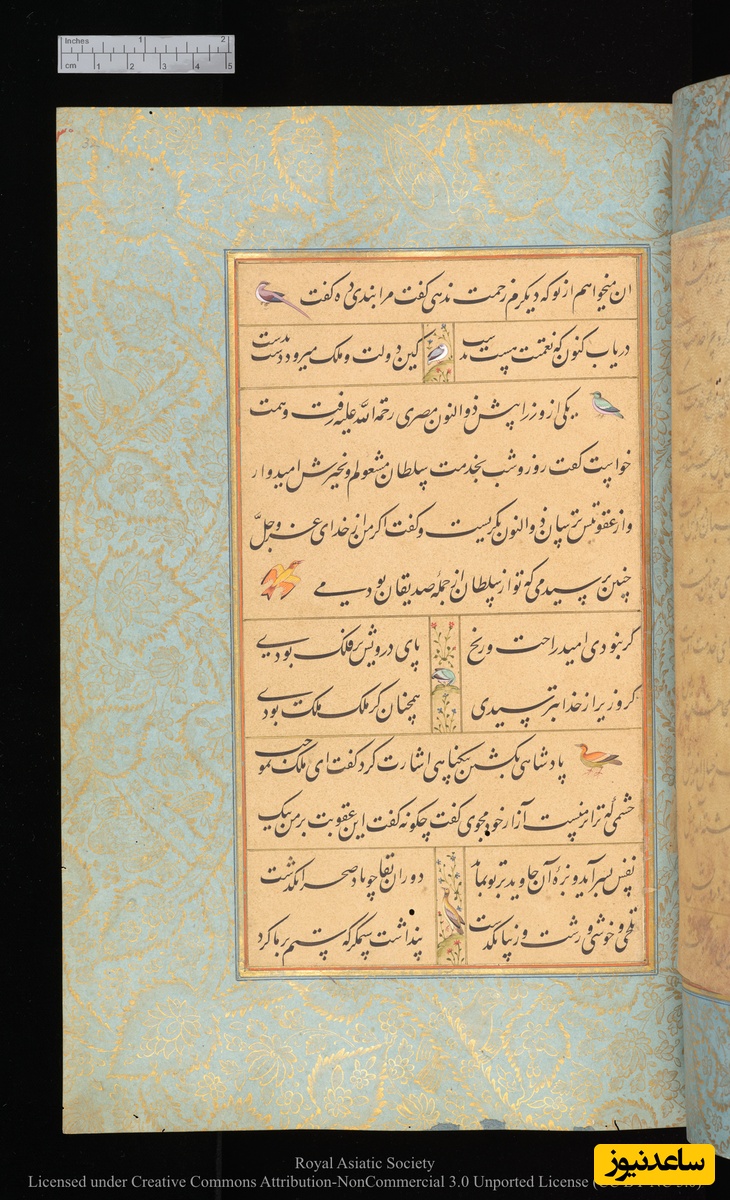 Inches 1 2
cm 1 2 3 4 5
32
آن میخواهم از تو که دیگرم زحمت ندهی گفت مرا بندی ده گفت
دریاب کنون که نعمتت هست بدست
کین دولت و ملک میرود دست بدست
یکی از وزرا پیش ذوالنون مصری رحمة الله علیه رفت و همت
خواست گفت روز و شب بخدمت سلطان مشغولم و بخیرش امیدوار
و از عقوبتش ترسان ذوالنون بگریست و گفت اگر من از خدای عز و جل
چنین پرسیدمی که تو از سلطان از جمله صدیقان بودیمی
گر نبودی امید راحت و رنج
پای درویش بر فلک بودی
گر وزیر از خدا بترسیدی
همچنان کز ملک ملک بودی
پادشاهی بکشتن بیگناهی اشارت کرد گفت ای ملک بموجب
خشمی که ترا بر منست آزار خود مجوی گفت چگونه گفت این عقوبت بر من بیک
نفس بسر آید و بزه آن جاوید بر تو بماند
دوران بقا چو باد صحرا بگذشت
تلخی و خوشی و زشت و زیبا بگذشت
پنداشت ستمگر که ستم بر ما کرد
Royal Asiatic Society
Licensed under Creative Commons Attribution-NonCommercial 3.0 Unported License (CC BY-NC 3.0)
ساعدنیوز